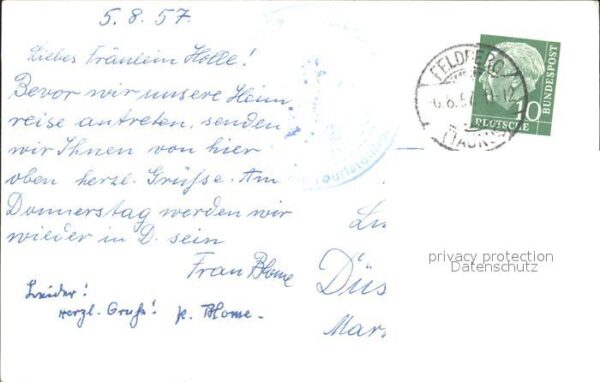 5.8.57.
Liebes Fräulein Holle!
Bevor wir unsere Heim-
reise antreten, senden
wir Ihnen von hier
oben herzl. Grüße. Am
Donnerstag werden wir
wieder in D. sein
Frau Blome
Leider!
Herzl. Gruß! K. Blome.
FELDBERG
(TAUN
DEUTSCHE
BUNDESPOST
10
Düs
Mar
privacy protection
Datenschutz